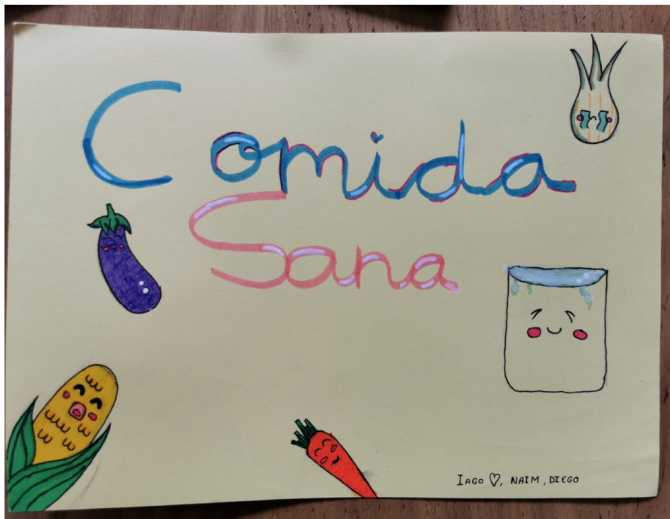 Comida
Sana
IAGO ♡, NAIM, DIEGO